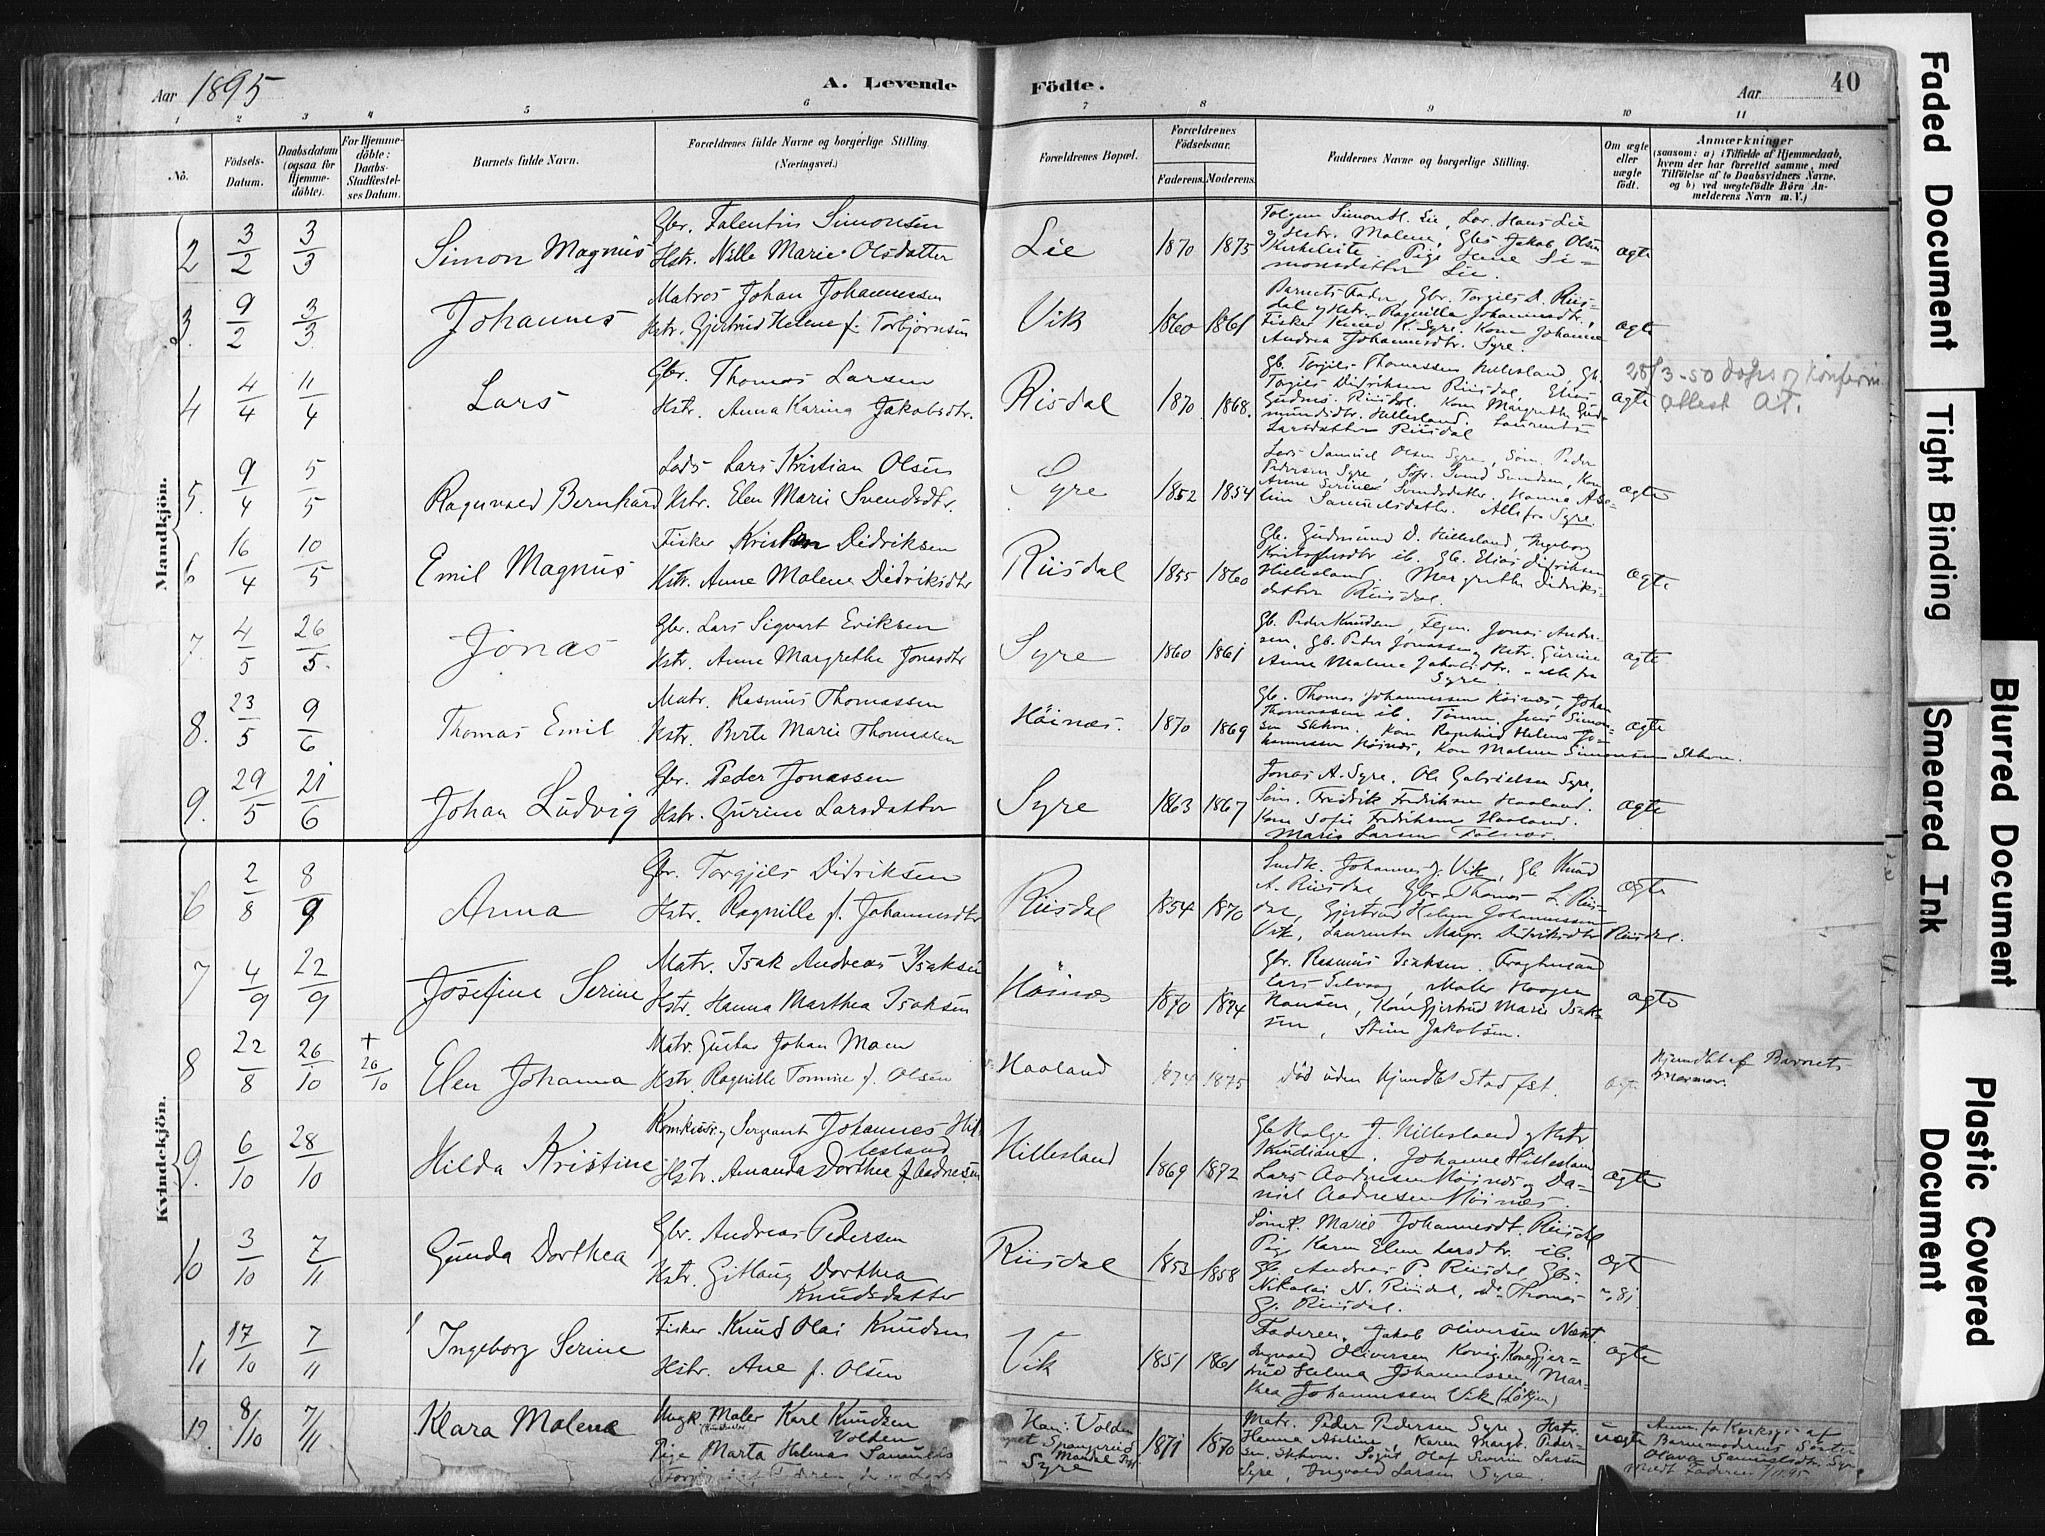 Aar 1895
A. Levende
Födte.
Aar
40
1 2 3 4 5 6 7 8 9 10 11
No.
Födsels-
Datum.
Daabsdatum
(ogsaa for
Hjemme-
döbte).
For Hjemme-
döbte:
Daabs-
Stadfæstel-
ses Datum.
Barnets fulde Navn.
Forældrenes fulde Navne og borgerlige Stilling.
(Næringsvei.)
Forældrenes Bopæl.
Forældrenes
Födselsaar.
Faderens. Moderens.
Faddernes Navne og borgerlige Stilling.
Om ægte
eller
uægte
födt.
Anmærkninger
(saasom: a) i Tilfælde af Hjemmedaab,
hvem der har forrettet samme, med
Tilföielse af to Daabsvidners Navne,
og b) ved uægtefödte Börn An-
melderens Navn m. V.)
Mandkjön.
2 3/2 3/3 Simon Magnus
Gbr. Falentin Simonsen
Hstr. Nille Marie Olsdatter
Lie 1870 1875
Hstr. Malene, Gbr. Jakob Olsen
Lie.
ægte
3. 9/2 3/3 Johannes
Matros Johan Johannessen
Hstr. Gjertrud Helene f. Torbjörnsen
Vik 1860 1861
Barnets Fader, Gbr. Torgils D. Riis-
dal og Hstr. Ragnilla Johannesdtr.,
Fisker Knud K. Syre. Kone Johanne
Andrea Johannesdtr. Syre.
ægte
4 4/4 11/4 Lars
Gbr. Thomas Larsen
Hstr. Anna Karina Jakobsdtr.
Risdal 1870 1868.
Gb. Torgils Thomassen Hillesland, Gb.
Torgils Didriksen Riisdal, Elias
Gudmes. Riisdal. Kone Margrethe Gud-
mundsdtr. Hillesland. Laurentse
Larsdatter Riisdal
ægte
28/3-50 daaps og konfirm
attest AT.
5. 9/4 5/5 Ragnvald Bernhard
Lods Lars Kristian Olsen
Hstr. Elen Marie Svendsdtr.
Syre 1852 1854
Lods Samuel Olsen Syre, Söm. Peder
Pedersen Syre, Svend Svendsen, Kone
Anne Serine Svendsdatter, Hanna Ase-
line Samuelsdatter. Alle fra Syre.
ægte
6 16/4 10/5 Emil Magnus
Fisker Didriksen
Hstr. Anne Malene Didriksdtr
Riisdal 1855 1860
Gb. Gudmund D. Hillesland, Ingeborg
Kristofersdtr ib. Gb. Elias Didriksen
Hillesland. Margrethe Didriks-
datter Riisdal.
ægte
7. 4/5 26/5. Jonas
Gbr. Lars Sigvart Eriksen
Hstr. Anne Margrethe Jonasdtr
Syre 1860 1861
Gb. Peder Knudsen, Jonas Ander-
sen, Gb. Peder Jonassen og Hstr. Gurine
Anne Malene Jakobsdtr. alle fra
Syre.
ægte
8. 23/5 9/6 Thomas Emil
Matr. Rasmus Thomassen
Hstr. Berte Marie Thomassen
Höinæs. 1870 1869
Gb. Thomas Johannessen Höinæs, Johan
Thomassen ib. Tömm. Jens Simon-
sen Skhvn. Kone Ragnhild Helene Jo-
hannessen Höinæs, Kone Malene Simonsen Skhvn.
ægte
9. 29/5 21/6 Johan Ludvig
Gbr. Peder Jonassen
Hstr. Gurine Larsdatter
Syre 1863 1867
Jonas A. Syre, Ole Gabrielsen Syre,
Söm. Fredrik Fredriksen Haaland.
Kone Sofie Fredriksen Haaland.
Marie Larsen Falnæs.
ægte
Kvindekjön.
6 2/8 8/9 Anna
Gbr. Torgjils Didriksen
Hstr. Ragnille f. Johannesdtr
Riisdal 1854 1870
Johannes J. Vik, Gb. Knud
A. Riisdal, Gbr Thomas L. Riis-
dal, Gjertrud Helene Johannessen
Vik, Laurentse Margr. Didriksdtr Riisdal.
ægte
7 4/9 22/9 Josefine Serine
Matr. Isak Andreas Isaksen
Hstr. Hanna Marthea Isaksen
Höinæs 1870 1874
Gbr. Rasmus Isaksen. Fragtmand
Lars Maler Haagen
Hansen, Kone Gjertrud Marie Isak-
sen, Stine Jakobsen.
ægte
8 22/8 26/10 + 26/10 Elen Johanna
Matr. Gustav Johan Moen
Hstr. Ragnille Tomine f. Olsen
Haaland 1874 1875
Död uden kjendt Stadfst.
ægt.
Hjemdbt af Barnets
Mormor.
9. 6/10 28/10 Hilda Kristine
Sergeant Johannes Hil-
lesland
Hstr. Amanda Dorthea f. Aadnesen
Hillesland 1869 1872
Gb. Helge J. Hillesland og Hstr
Johanne Hillesland
Lars Aadnesen Höinæs og Da-
niel Aadnesen Höinæs.
ægte
10 3/10 7/11 Gunda Dorthea
Gbr. Andreas Pedersen
Hstr. Gitlaug Dorthea
Knudsdatter
Riisdal 1853 1858
Marie Johannesdt. Riisdal
Pige Karen Elene Larsdtr. ib.
Gb. Andreas P. Riisdal, Gbr.
Nikolai N. Riisdal, Thomas
G. Riisdal.
ægt
11 17/10 7/11 Ingeborg Serine
Fisker Knud Olai Knudsen
Hstr. Ane f. Olsen
Vik 1851 1861
Faderen, Jakob Oliversen Næset
Ingvald Oliversen Kone Gjer-
trud Helene Johannessen, Mar-
thea Johannessen Vik
ægte
12. 8/10 7/11 Klara Malene
Ungk. Maler Karl Knudsen
Volden
Pige Marta Helene Samuels
Volden
Spangereid
Mandal
Syre
1871 1870
Matr. Peder Pedersen Syre, Hstr.
Hanna Aseline, Karen Margt. Peder-
sen Skhvn. Olaf Severin Larsen
Syre, Ingvald Larsen Syre.
uægte
Barnemoderens Söster
Olava Samuelsdtr. Syre
Faded Document
Tight Binding
Blurred Document
Smeared Ink
Plastic Covered
Document